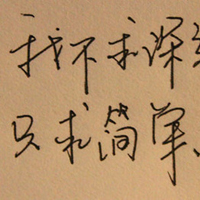 我不求深
只求简单、